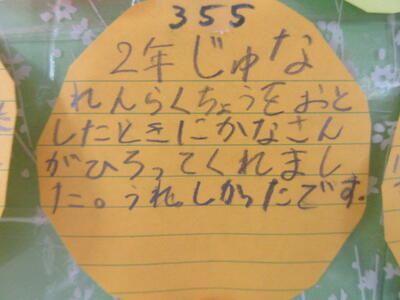 355
2年じゅな
れんらくちょうをおと
したときにかなさん
がひろってくれまし
た。うれしかったです。